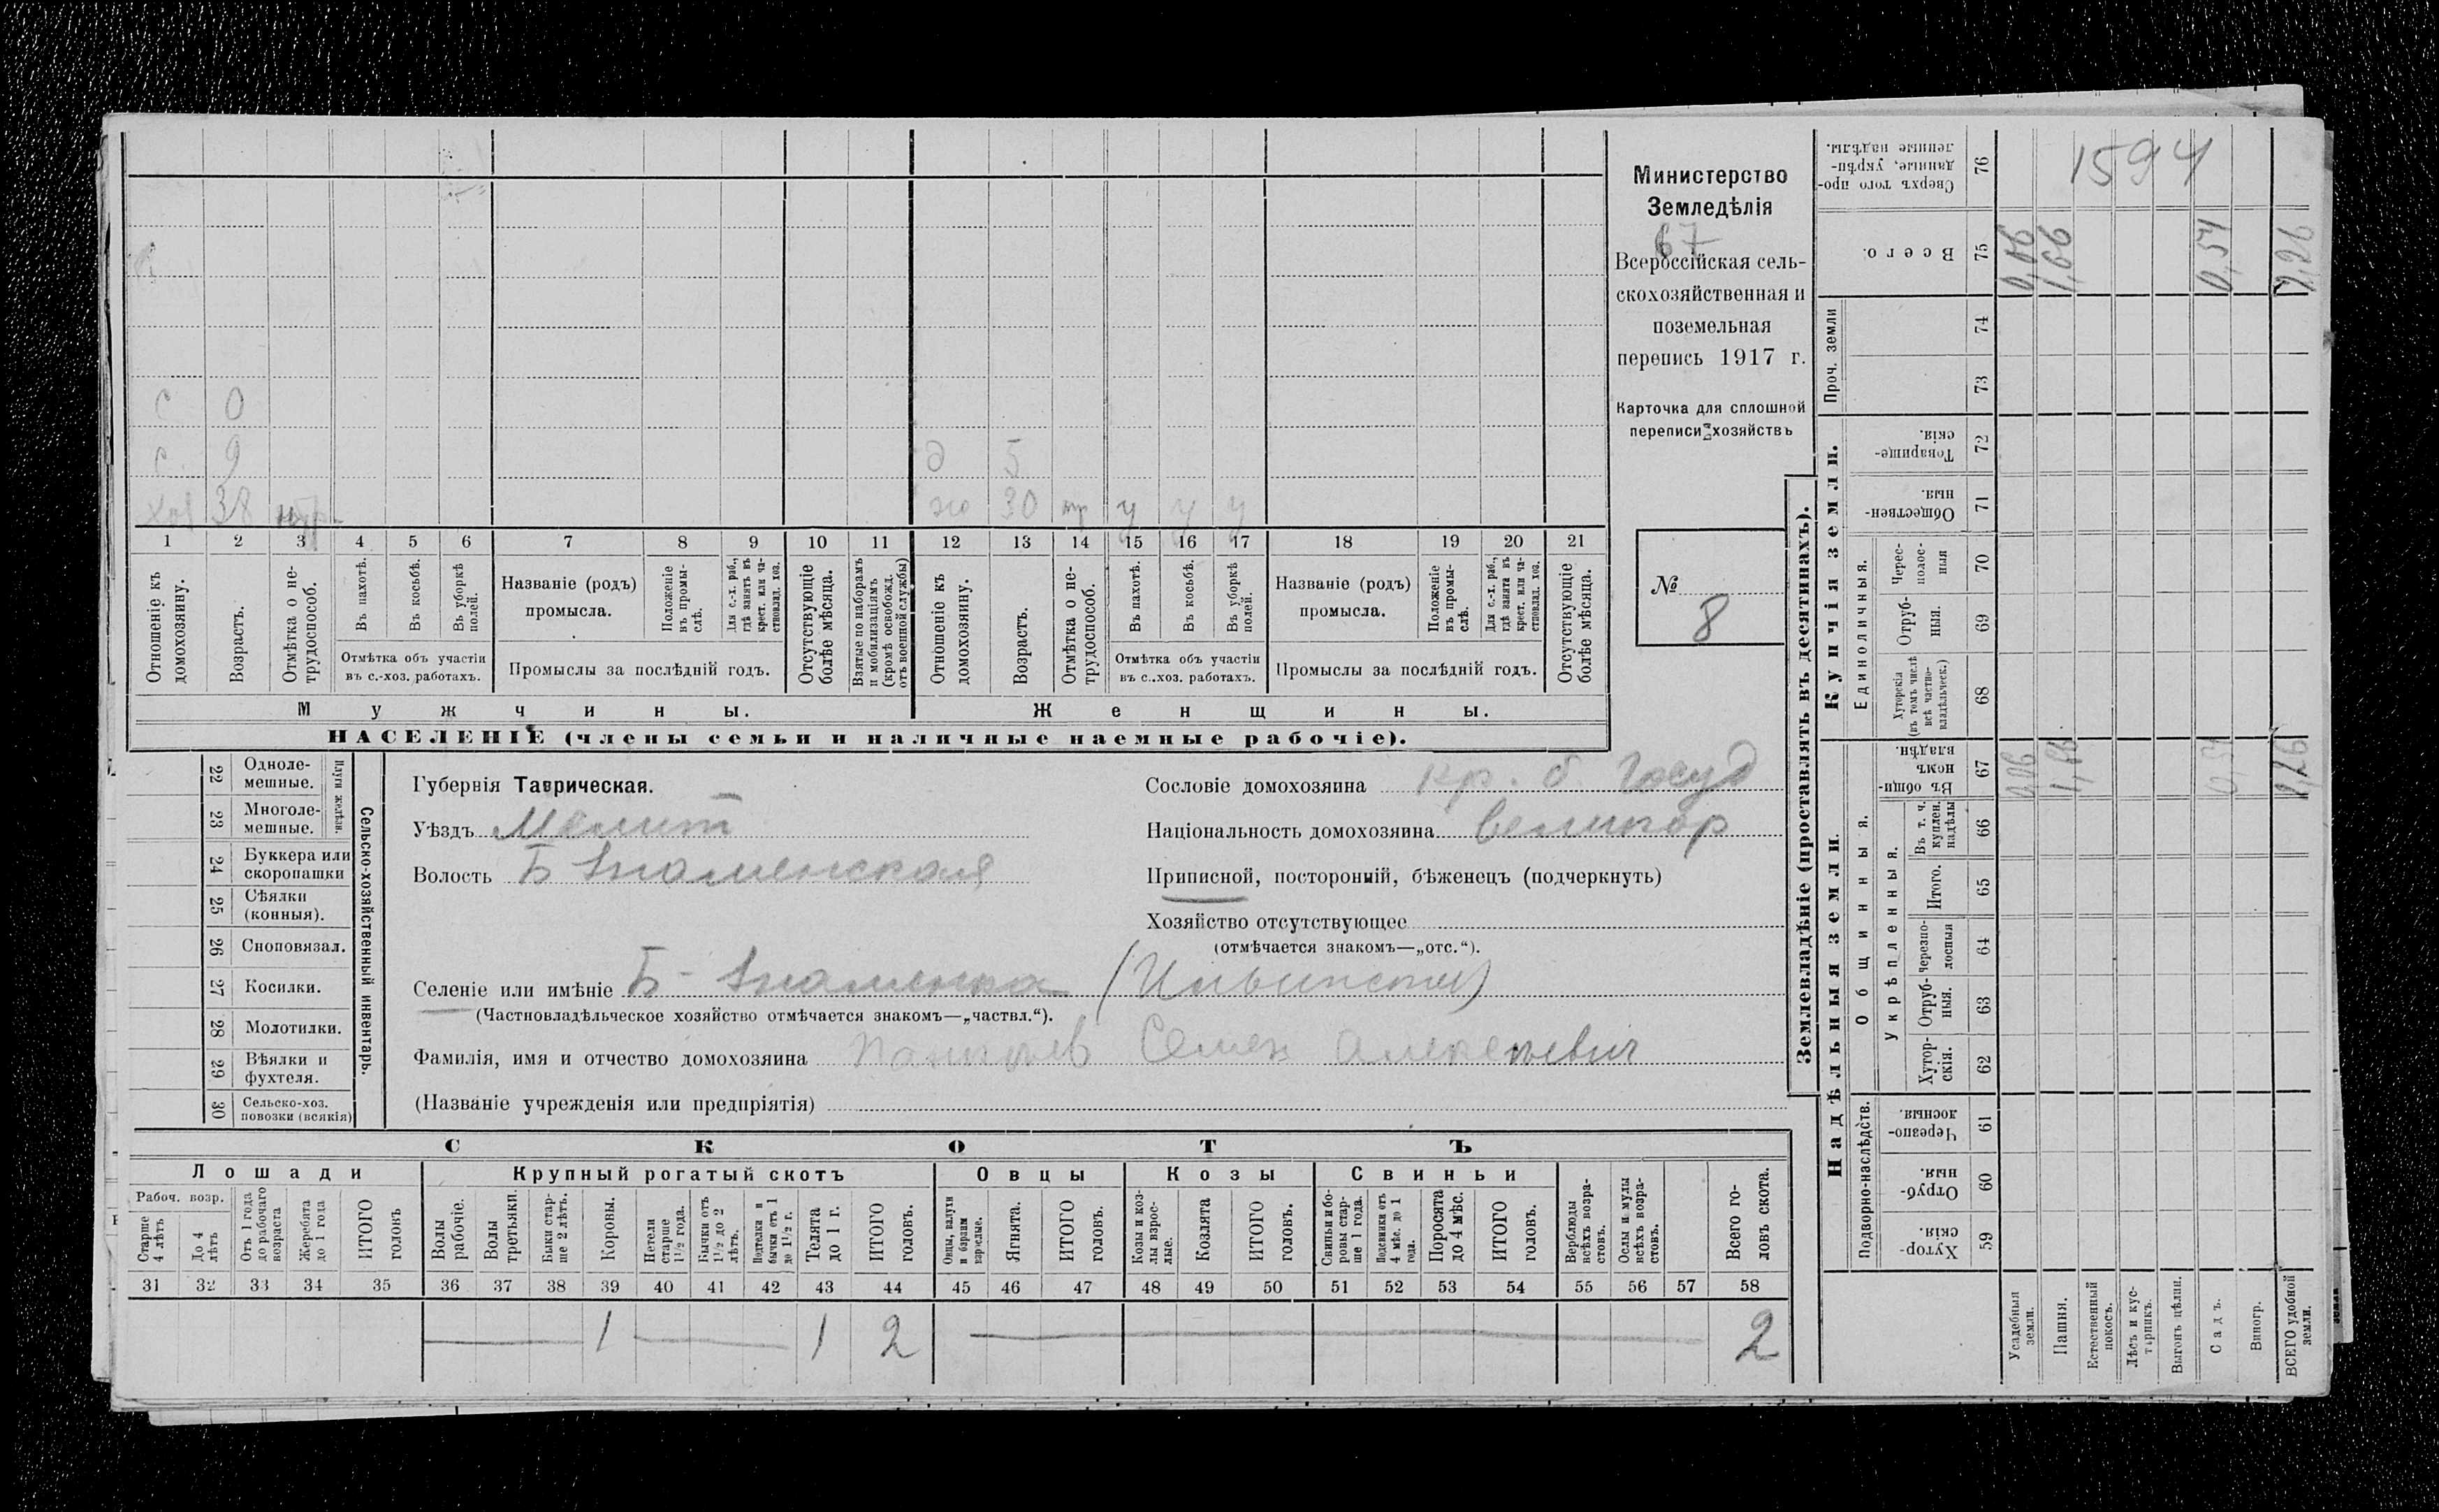 Министерство
Земледѣлія
67
Всероссійская сель-
скохозяйственная и
поземельная
перепись 1917 г.
Карточка для сплошной
переписи хозяйствъ
№
8
с 0
с. 9
д 5
хоз 38
ж 30 тр у у у
1 2 3 4 5 6 7 8 9 10 11 12 13 14 15 16 17 18 19 20 21
Отношеніе къ домохозяину.
Возрастъ.
Отмѣтка о не-трудоспособ.
Въ пахотѣ.
Въ косьбѣ.
Въ уборкѣ полей.
Отмѣтка объ участіи
въ с.-хоз. работахъ.
Названіе (родъ)
промысла.
Положеніе въ промы-слѣ.
Для с.-х. раб., гдѣ занятъ въ крест. или ча-стновлад. хоз.
Промыслы за послѣдній годъ.
Отсутствующіе болѣе мѣсяца.
Взятые по наборамъ и мобилизаціямъ (кромѣ освобожд. отъ военной службы)
Отношеніе къ домохозяину.
Возрастъ.
Отмѣтка о не-трудоспособ.
Въ пахотѣ.
Въ косьбѣ.
Въ уборкѣ полей.
Отмѣтка объ участіи
въ с.-хоз. работахъ.
Названіе (родъ)
промысла.
Положеніе въ промы-слѣ.
Для с.-х. раб., гдѣ занята въ крест. или ча-стновлад. хоз.
Промыслы за послѣдній годъ.
Отсутствующіе болѣе мѣсяца.
Мужчины.
Женщины.
НАСЕЛЕНІЕ (члены семьи и наличные наемные рабочіе).
22 Одноле-мешные.
23 Многоле-мешные.
Плуги желѣзн.
24 Буккера или скоропашки
25 Сѣялки (конныя).
26 Сноповязал.
27 Косилки.
28 Молотилки.
29 Вѣялки и фухтеля.
30 Сельско-хоз. повозки (всякія)
Сельско-хозяйственный инвентарь.
Губернія Таврическая.
Уѣздъ Мелит
Волость Б Знаменская
Сословіе домохозяина кр. б. Госуд
Національность домохозяина великор
Приписной, посторонній, бѣженецъ (подчеркнуть)
Хозяйство отсутствующее
(отмѣчается знакомъ—„отс.“).
Селеніе или имѣніе Б-Знаменка
(Частновладѣльческое хозяйство отмѣчается знакомъ—„частвл.“).
Фамилія, имя и отчество домохозяина Семен Алексеевич
(Названіе учрежденія или предпріятія)
СКОТЪ
Лошади
Крупный рогатый скотъ
Овцы
Козы
Свиньи
Рабоч. возр.
Старше 4 лѣтъ
До 4 лѣтъ
Отъ 1 года до рабочаго возраста
Жеребята до 1 года
ИТОГО головъ
Волы рабочіе.
Волы третьяки.
Быки стар-ше 2 лѣтъ.
Коровы.
Нетели старше 1½ года.
Бычки отъ 1½ до 2 лѣтъ.
Подтелки и бычки отъ 1 до 1½ г.
Телята до 1 г.
ИТОГО головъ.
Овцы, валухи и бараны взрослые.
Ягнята.
ИТОГО головъ.
Козы и коз-лы взрос-лые.
Козлята
ИТОГО головъ.
Свиньи и бо-ровы стар-ше 1 года.
Подсвинки отъ 4 мѣс. до 1 года.
Поросята до 4 мѣс.
ИТОГО головъ.
Верблюды всѣхъ возра-стовъ.
Ослы и мулы всѣхъ возра-стовъ.
Всего го-ловъ скота.
31 32 33 34 35 36 37 38 39 40 41 42 43 44 45 46 47 48 49 50 51 52 53 54 55 56 57 58
1 1 2 2
Землевладѣніе (проставлять въ десятинахъ).
Надѣльныя земли.
Купчія земли.
Проч. земли
Подворно-наслѣдств.
Общинныя.
Укрѣпленныя.
Единоличныя.
Хутор-скія. 59
Отруб-ныя. 60
Черезпо-лосныя. 61
Хутор-скія. 62
Отруб-ныя. 63
Черезпо-лосныя 64
Итого. 65
Въ т. ч. куплен. надѣлы 66
Въ общин-номъ владѣн. 67
Хуторскія (въ томъ числѣ всѣ частно-владѣльческ.) 68
Отруб-ныя. 69
Черес-полос-ныя 70
Обществен-ныя. 71
Товарище-скія. 72
73
74
Всего. 75
Сверхъ того про-данные, укрѣп-ленные надѣлы. 76
1594
Усадебныя земли. 0,06 0,06
Пашня. 1,66 1,66
Естественный покосъ.
Лѣсъ и кус-тарникъ.
Выгонъ цѣлин.
Садъ. 0,54 0,54
Виногр.
ВСЕГО удобной земли. 2,26 2,26